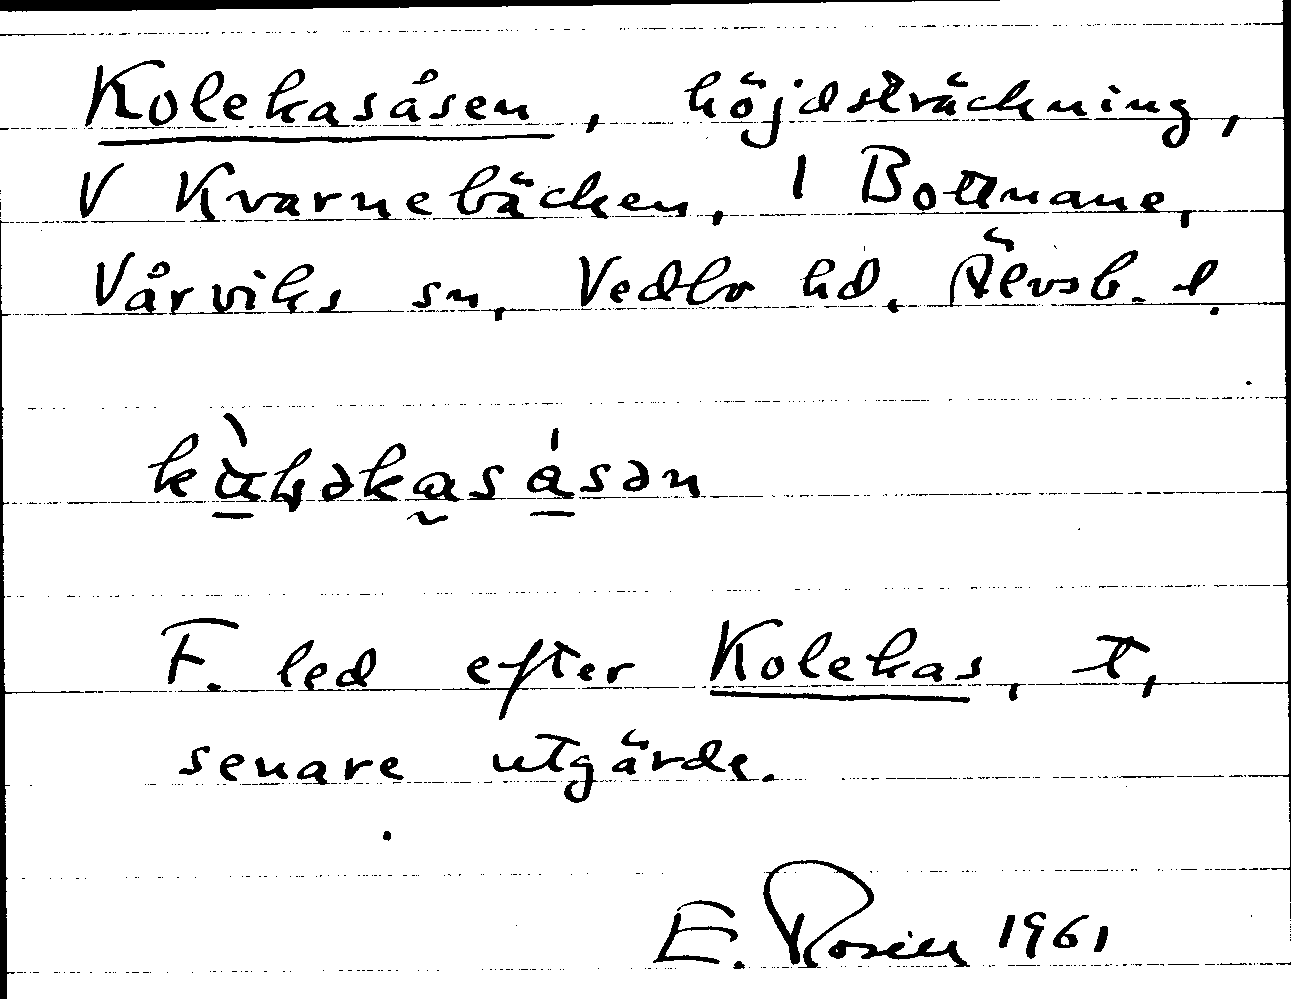 Kolekasåsen, höjdsträckning,
V Kvarnebäcken, 1 Bottnane,
Vårviks sn, Vedbo hd. Älvsb. l.
F. led efter Kolekas, t,
senare utgärde.
E. Rosén 1961